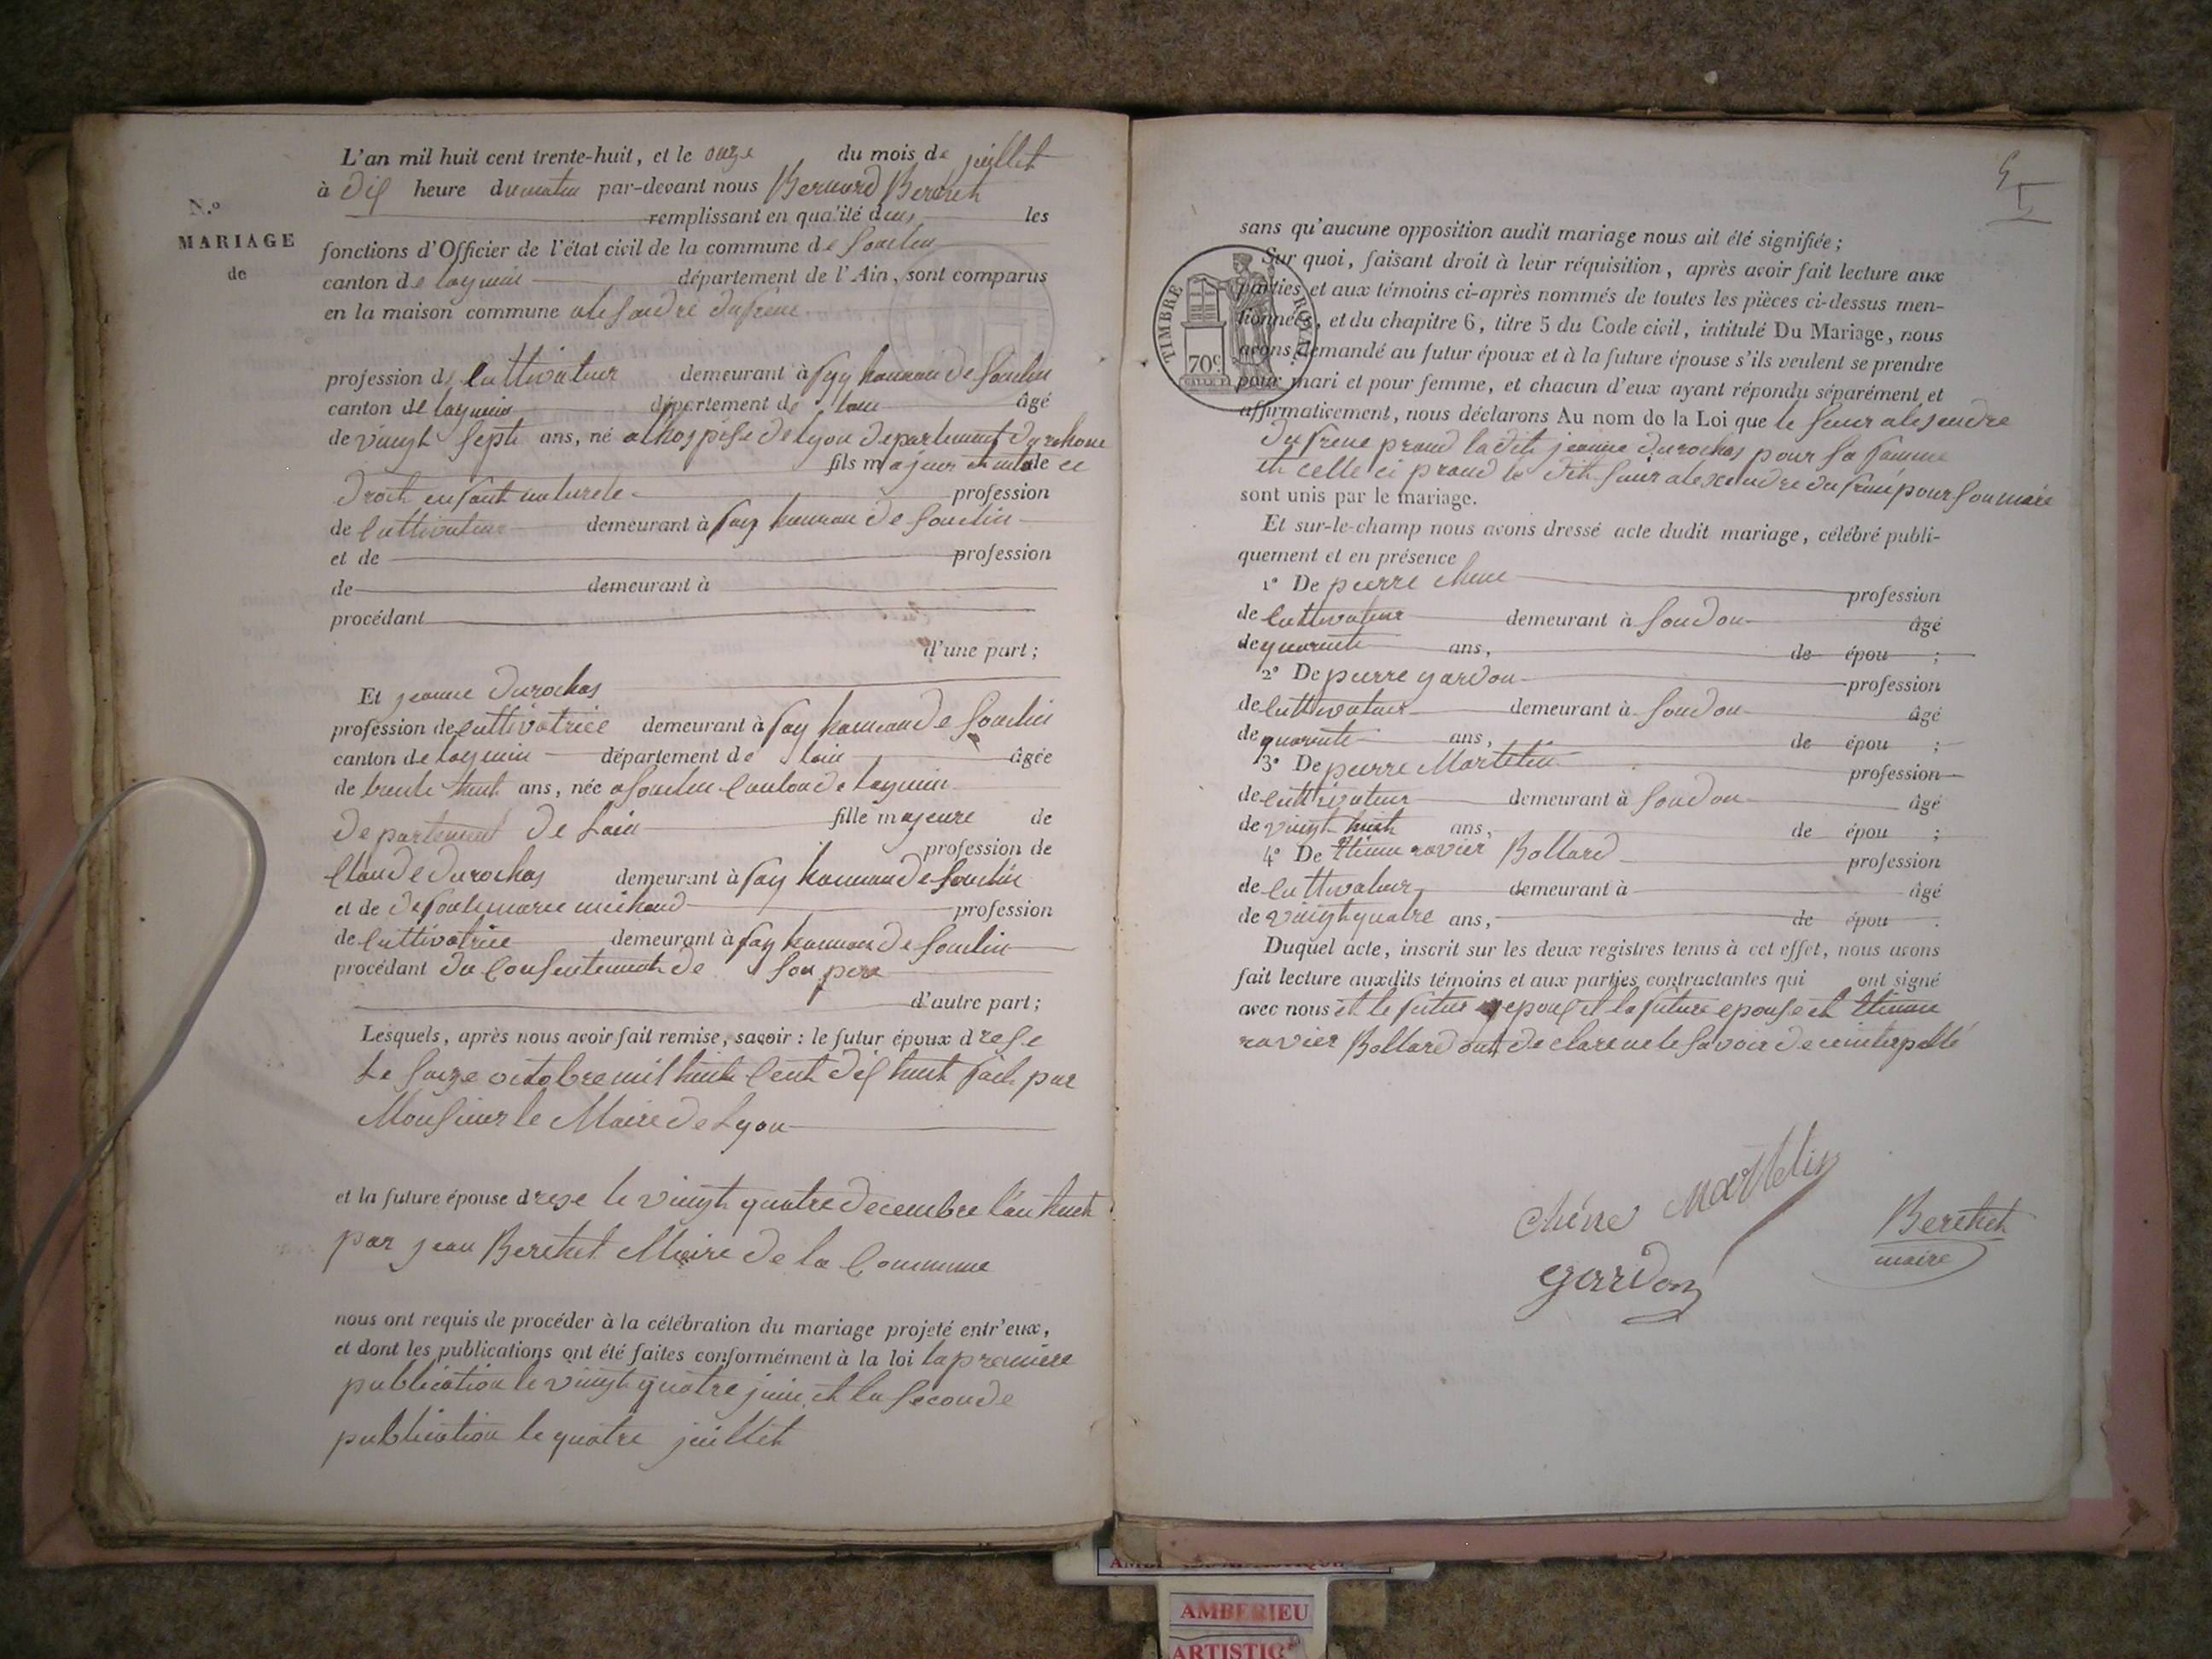 L'an mil huit cent trente-huit, et le onze du mois de juillet
à dix heure du matin par-devant nous Bernard Berthet
N.o
remplissant en qualité de les
MARIAGE
fonctions d'Officier de l'état civil de la commune de Souclin
de
canton de Lagnieu département de l'Ain, sont comparus
en la maison commune alesandre dufrene
profession de Cultivateur demeurant à fay hameau de Souclin
canton de Lagnieu département de lain âgé
de vingt sept ans, né a lhospise de Lyon departement du rhone
fils majeur de ce
droit enfant naturele profession
de Cultivateur demeurant à fay hameau de Souclin
et de profession
de demeurant à
procédant
d'une part;
Et jeanne durochas
profession de Cultivatrice demeurant à fay hameau de Souclin
canton de Lagnieu département de lain âgée
de trente huit ans, née a Souclin Canton de Lagnieu
departement de Lain fille majeure de
profession de
Claude durochas demeurant à fay hameau de Souclin
et de defunte marie michaud profession
de Cultivatrice demeurant à fay hameau de Souclin
procédant du Consentement de son pere
d'autre part;
Lesquels, après nous avoir fait remise, savoir: le futur époux drese
Le saize octobre mil huit Cent dix huit fait par
Monsieur le Maire de Lyon
et la future épouse drese le vingt quatre decembre l'an huit
par jean Berthet Maire de la Commune
nous ont requis de procéder à la célébration du mariage projeté entr'eux,
et dont les publications ont été faites conformément à la loi la premiere
publication le vingt quatre juin et la seconde
publication le quatre juillet
5
sans qu'aucune opposition audit mariage nous ait été signifiée;
Sur quoi, faisant droit à leur réquisition, après avoir fait lecture aux
parties et aux témoins ci-après nommés de toutes les pièces ci-dessus men-
tionnées, et du chapitre 6, titre 5 du Code civil, intitulé Du Mariage, nous
avons demandé au futur époux et à la future épouse s'ils veulent se prendre
pour mari et pour femme, et chacun d'eux ayant répondu séparément et
affirmativement, nous déclarons Au nom de la Loi que le sieur alesendre
dufrene prand la dite jeanne durochas pour sa famme
et celle ci prand le dit sieur alexandre dufrene pour son marie
sont unis par le mariage.
TIMBRE ROYAL
70c.
Et sur-le-champ nous avons dressé acte dudit mariage, célébré publi-
quement et en présence
1o De pierre chene profession
de Cultivateur demeurant à Soudon âgé
de quarente ans, de épou ;
2o De pierre gardon profession
de Cultivateur demeurant à Soudon âgé
de quarente ans, de épou ;
3o De pierre Martelin profession
de Cultivateur demeurant à Soudon âgé
de vingt huit ans, de épou ;
4o De Etienne ravier Bollard profession
de Cultivateur demeurant à âgé
de vingt quatre ans, de épou .
Duquel acte, inscrit sur les deux registres tenus à cet effet, nous avons
fait lecture auxdits témoins et aux parties contractantes qui ont signé
avec nous et le futur epoux et la future epouse et Etienne
ravier Bollard ont declare ne le savoir de ce interpellé
chêne Martelin
Berthet
maire
gardon
AMBERIEU
ARTISTIQ